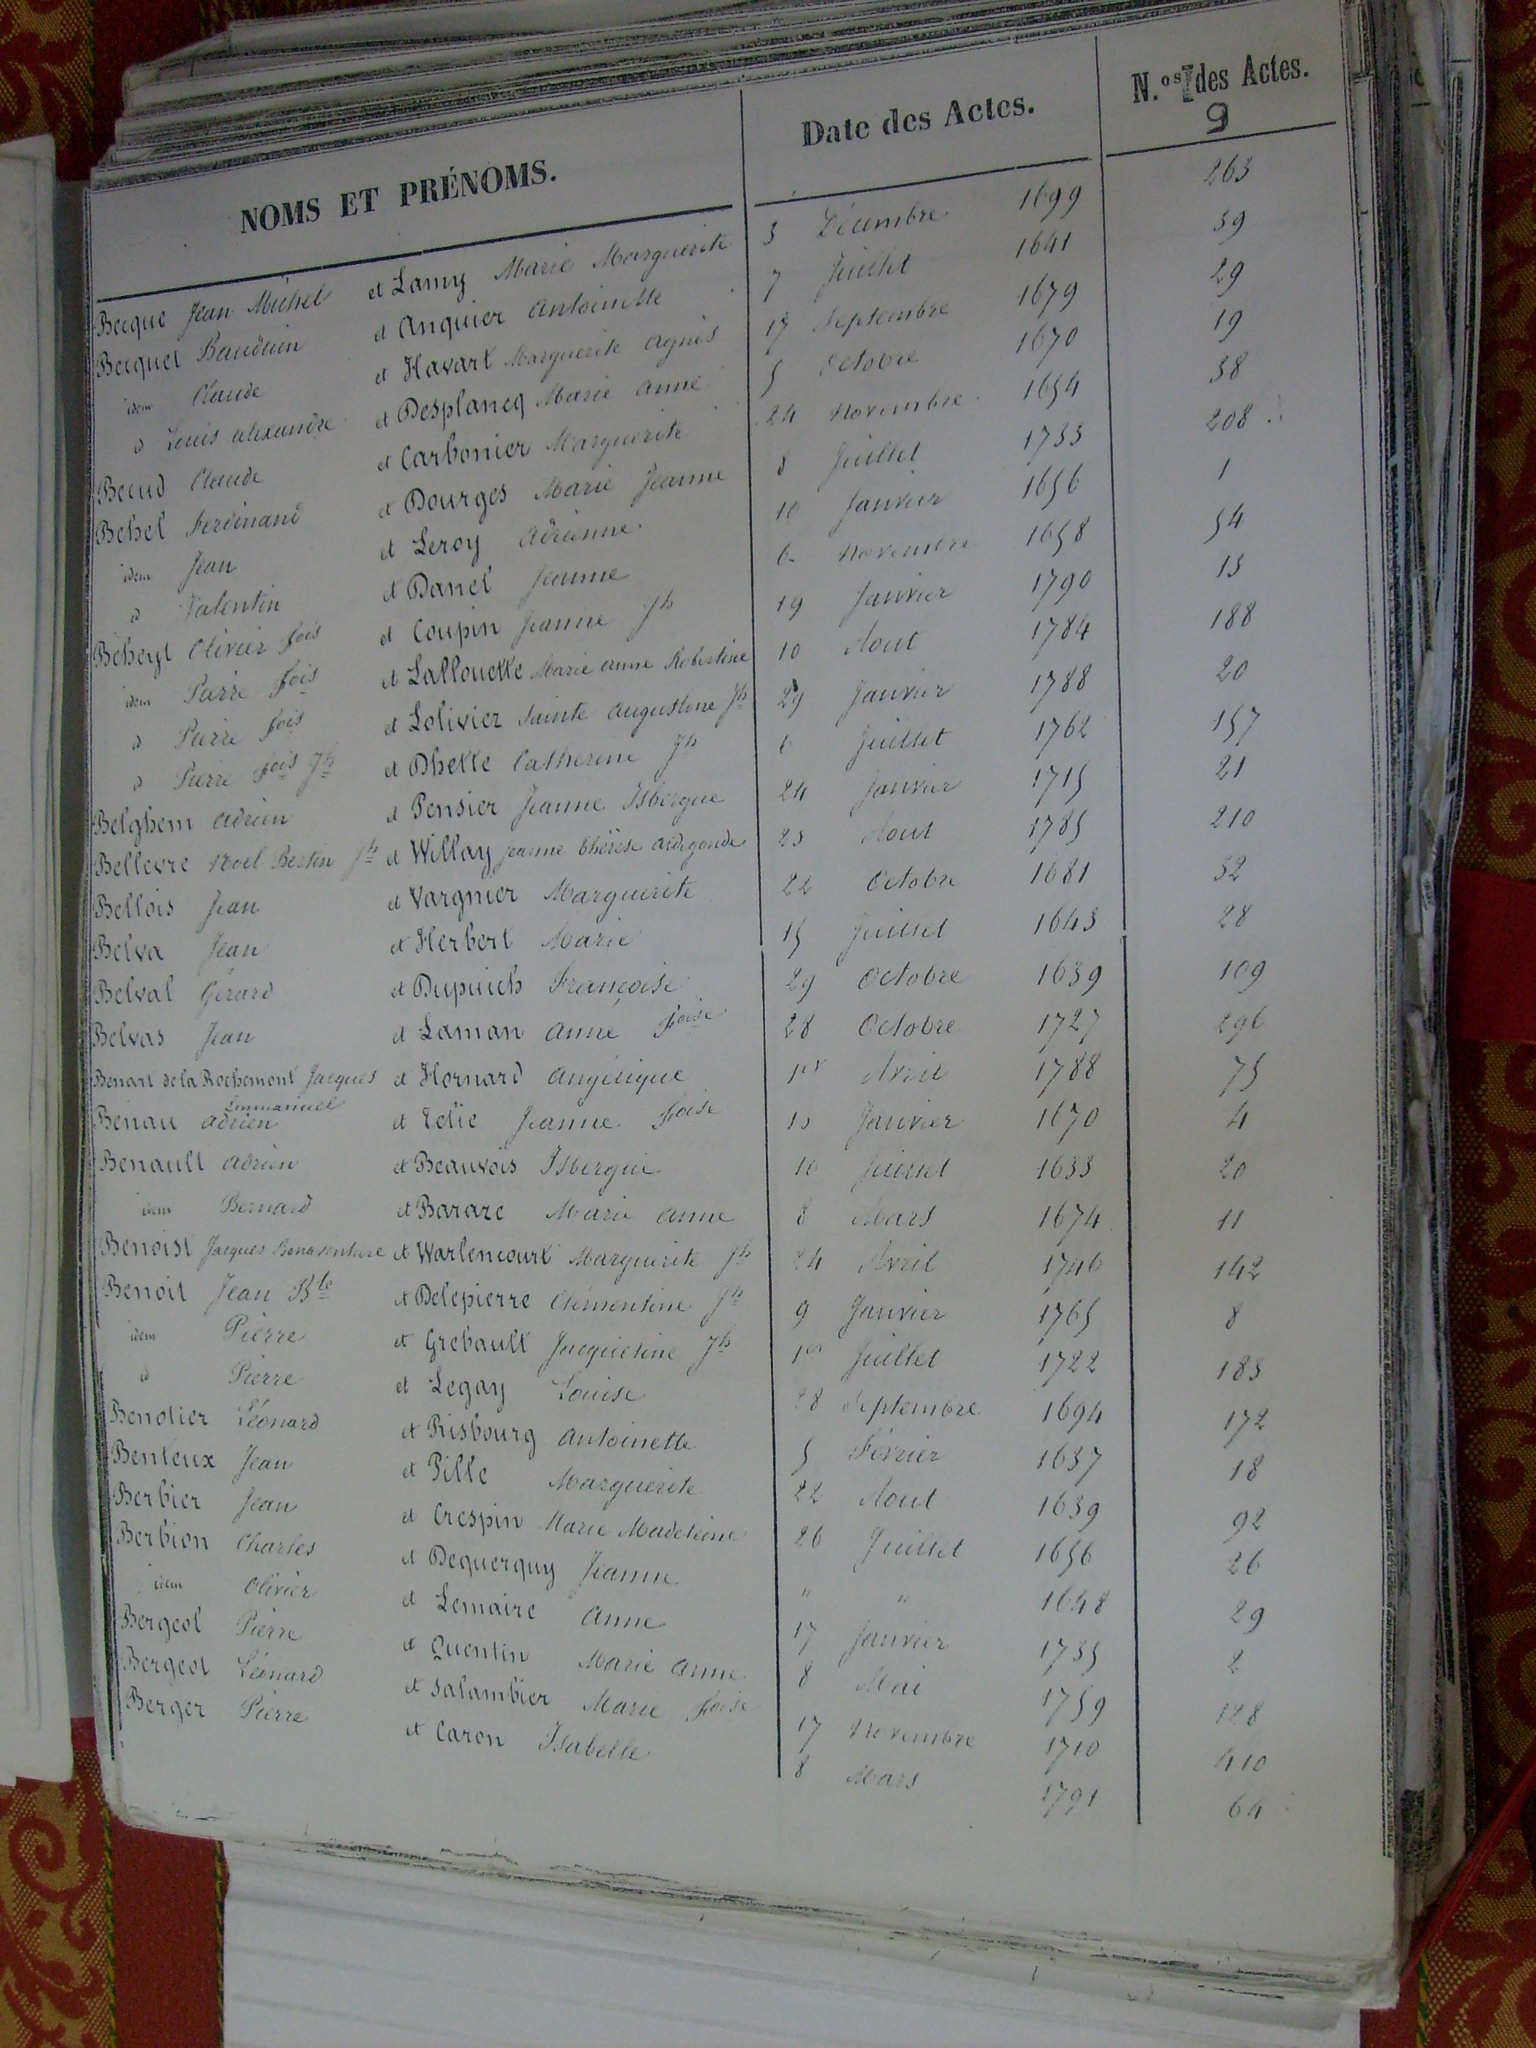 NOMS ET PRÉNOMS. Date des Actes. N.os des Actes.
9
Becque Jean Michel et Lamy Marie Marguerite 3 Décembre 1699 263
Becquet Bauduin et Anquier Antoinette 7 Juillet 1641 39
idem Claude et Havart Marguerite Agnès 17 Septembre 1679 29
d Louis Alexandre et Desplancq Marie Anne 5 Octobre 1670 19
Becud Claude et Carbonier Marguerite 24 Novembre 1654 38
Behel Ferdinand et Dourges Marie Jeanne 8 Juillet 1733 208
idem Jean et Leroy Adrienne 10 Janvier 1656 1
d Valentin et Danel Jeanne 6 Novembre 1658 54
Béheyt Olivier fois et Coupin Jeanne Jh 19 Janvier 1790 13
idem Pierre fois et Lallouette Marie Anne Robertine 10 Aout 1784 188
d Pierre fois et Lolivier Sainte Augustine Jh 29 Janvier 1788 20
d Pierre fois Jh et Dhette Catherine Jh 6 Juillet 1762 157
Belghem Adrien et Pensier Jeanne Isbergue 24 Janvier 1715 21
Bellevre Noel Bertin Jh et Willay Jeanne Thérèse Aldegonde 23 Aout 1785 210
Bellois Jean et Vargnier Marguerite 22 Octobre 1681 32
Belva Jean et Herbert Marie 15 Juillet 1643 28
Belval Gérard et Dupuich Françoise 29 Octobre 1639 109
Belvas Jean et Laman Anne foise 28 Octobre 1727 296
Benart de la Rochemont Jacques Emmanuel et Hornard Angélique 1er Avril 1788 75
Benau Adrien et Edie Jeanne foise 13 Janvier 1670 4
Benault Adrien et Beauvois Isbergue 10 Juillet 1633 20
idem Bernard et Bararc Marie Anne 8 Mars 1674 11
Benoist Jacques Bonaventure et Warlencourt Marguerite Jh 24 Avril 1746 142
Benoit Jean Bte et Delepierre Clémentine Jh 9 Janvier 1765 8
idem Pierre et Grebault Jacqueline Jh 1er Juillet 1722 183
d Pierre et Legay Louise 28 Septembre 1694 172
Benotier Léonard et Risbourg Antoinette 5 Février 1637 18
Benteux Jean et Pille Marguerite 22 Aout 1639 92
Berbier Jean et Crespin Marie Madeleine 26 Juillet 1656 26
Berbion Charles et Dequerquy Jeanne " " 1648 29
idem Olivier et Lemaire Anne 17 Janvier 1735 2
Bergeol Pierre et Quentin Marie Anne 8 Mai 1759 128
Bergeot Léonard et Salambier Marie foise 17 Novembre 1710 410
Berger Pierre et Caron Isabelle 8 Mars 1791 64